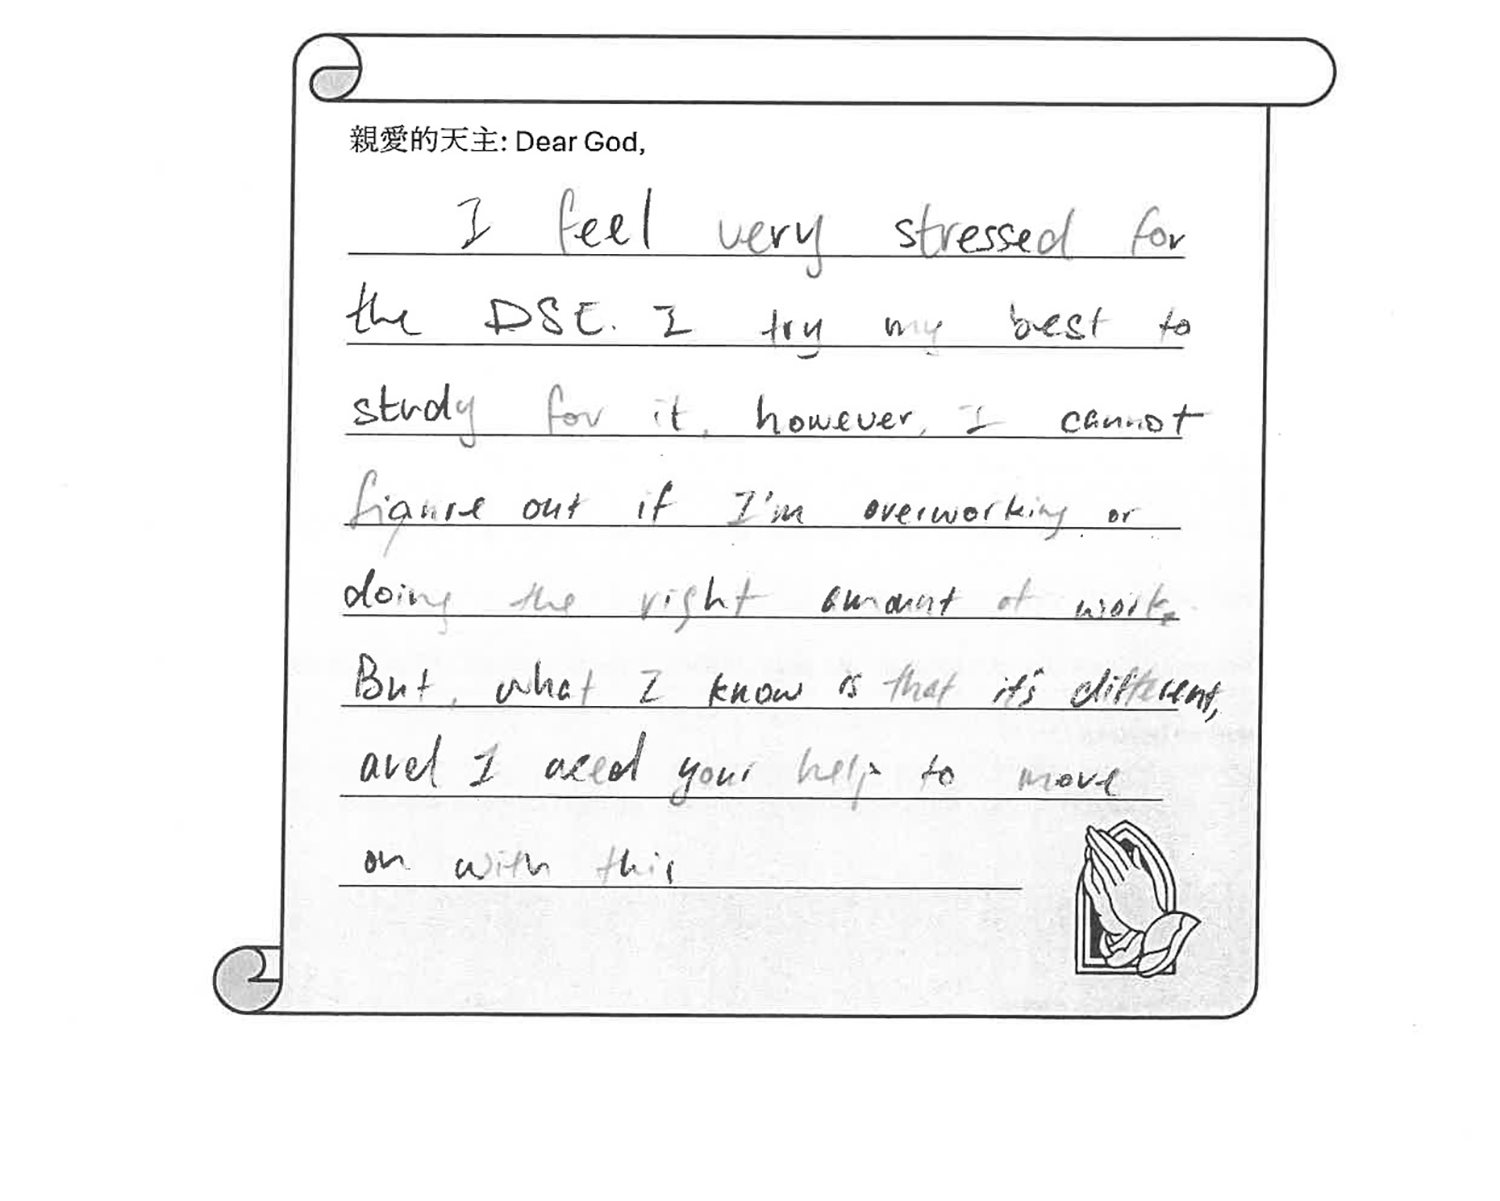 親愛的天主: Dear God,
I feel very stressed for
the DSE. I try my best to
study for it, however, I cannot
figure out if I'm overworking or
doing the right amount of work.
But, what I know is that it's different,
and I need your help to move
on with this